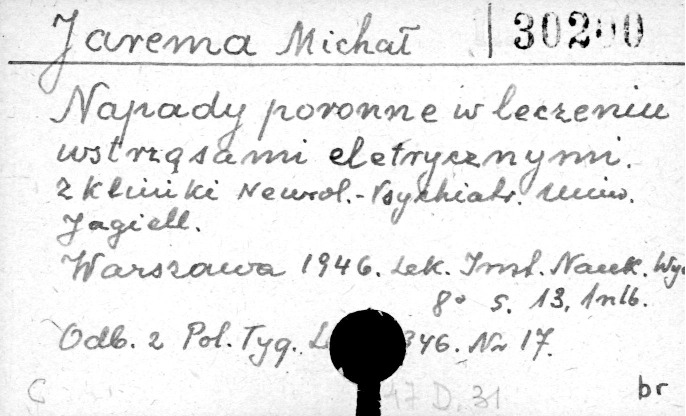 Jarema Michał 30200
Napady poronne w leczeniu
wstrząsami eletrycznymi.
Z kliniki Neurol.-Psychiatr. Uniw.
Jagiell.
Warszawa 1946. Lek. Inst. Nauk. Wyd
8° s. 13, 1 nlb.
Odb. z Pol. Tyg. L 946. Nr 17.
C 47 D. 31 br